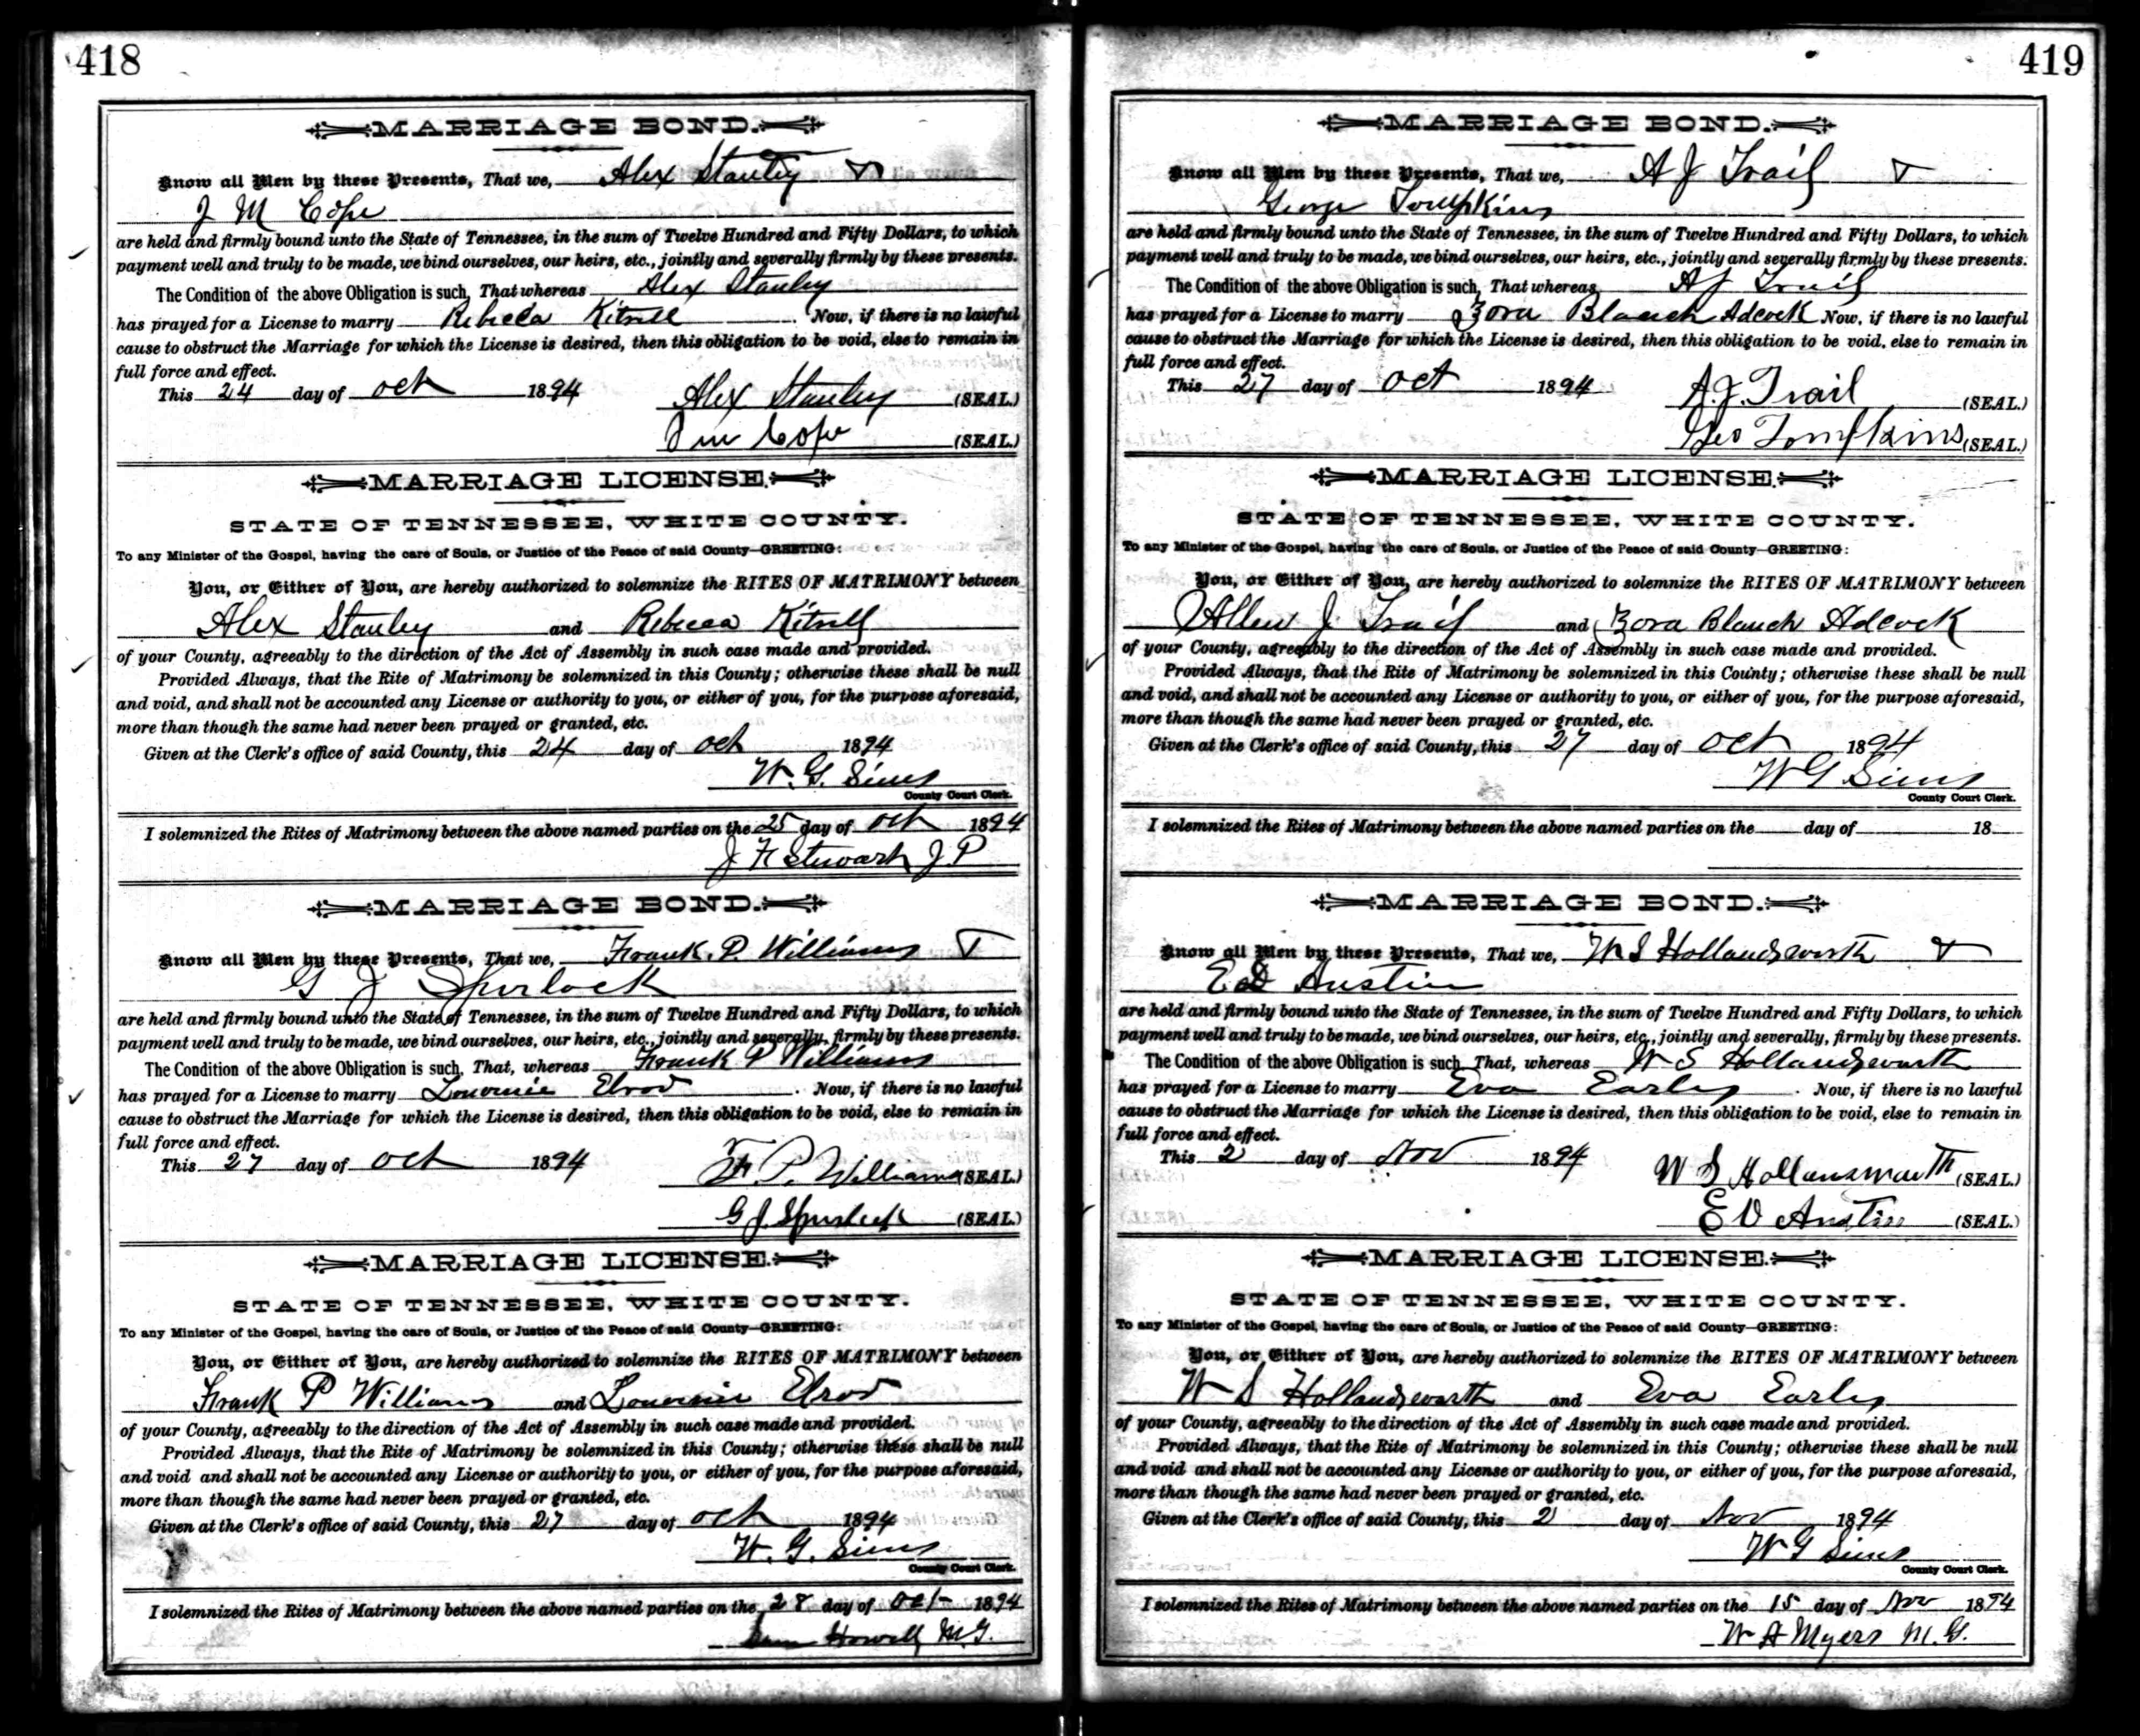 418
MARRIAGE BOND.
Know all Men by these Presents, That we, Alex Stanley &
J M Cope
are held and firmly bound unto the State of Tennessee, in the sum of Twelve Hundred and Fifty Dollars, to which
payment well and truly to be made, we bind ourselves, our heirs, etc., jointly and severally firmly by these presents.
The Condition of the above Obligation is such, That whereas Alex Stanley
has prayed for a License to marry Rebecca Kitrell. Now, if there is no lawful
cause to obstruct the Marriage for which the License is desired, then this obligation to be void, else to remain in
full force and effect.
This 24 day of Oct 1894
Alex Stanley (SEAL.)
J M Cope (SEAL.)
MARRIAGE LICENSE.
STATE OF TENNESSEE, WHITE COUNTY.
To any Minister of the Gospel, having the care of Souls, or Justice of the Peace of said County—GREETING:
You, or Either of You, are hereby authorized to solemnize the RITES OF MATRIMONY between
Alex Stanley and Rebecca Kitrell
of your County, agreeably to the direction of the Act of Assembly in such case made and provided.
Provided Always, that the Rite of Matrimony be solemnized in this County; otherwise these shall be null
and void, and shall not be accounted any License or authority to you, or either of you, for the purpose aforesaid,
more than though the same had never been prayed or granted, etc.
Given at the Clerk's office of said County, this 24 day of Oct 1894
W. G. Sims
County Court Clerk.
I solemnized the Rites of Matrimony between the above named parties on the 25 day of Oct 1894
J H Stewart J P
MARRIAGE BOND.
Know all Men by these Presents, That we, Frank. P. Williams &
G J Spurlock
are held and firmly bound unto the State of Tennessee, in the sum of Twelve Hundred and Fifty Dollars, to which
payment well and truly to be made, we bind ourselves, our heirs, etc., jointly and severally, firmly by these presents.
The Condition of the above Obligation is such, That, whereas Frank P Williams
has prayed for a License to marry Louvenie Elrod. Now, if there is no lawful
cause to obstruct the Marriage for which the License is desired, then this obligation to be void, else to remain in
full force and effect.
This 27 day of Oct 1894
F. P. Williams (SEAL.)
G J Spurlock (SEAL.)
MARRIAGE LICENSE.
STATE OF TENNESSEE, WHITE COUNTY.
To any Minister of the Gospel, having the care of Souls, or Justice of the Peace of said County—GREETING:
You, or Either of You, are hereby authorized to solemnize the RITES OF MATRIMONY between
Frank P Williams and Louvenie Elrod
of your County, agreeably to the direction of the Act of Assembly in such case made and provided.
Provided Always, that the Rite of Matrimony be solemnized in this County; otherwise these shall be null
and void and shall not be accounted any License or authority to you, or either of you, for the purpose aforesaid,
more than though the same had never been prayed or granted, etc.
Given at the Clerk's office of said County, this 27 day of Oct 1894
W. G. Sims
County Court Clerk.
I solemnized the Rites of Matrimony between the above named parties on the 28 day of Oct 1894
Sam Howell M.G.
419
MARRIAGE BOND.
Know all Men by these Presents, That we, A J Trail &
George Tompkins
are held and firmly bound unto the State of Tennessee, in the sum of Twelve Hundred and Fifty Dollars, to which
payment well and truly to be made, we bind ourselves, our heirs, etc., jointly and severally firmly by these presents.
The Condition of the above Obligation is such, That whereas, A J Trail
has prayed for a License to marry Zora Blanch Adcock Now, if there is no lawful
cause to obstruct the Marriage for which the License is desired, then this obligation to be void, else to remain in
full force and effect.
This 27 day of Oct 1894
A. J. Trail (SEAL.)
Geo Tompkins (SEAL.)
MARRIAGE LICENSE.
STATE OF TENNESSEE, WHITE COUNTY.
To any Minister of the Gospel, having the care of Souls, or Justice of the Peace of said County—GREETING:
You, or Either of You, are hereby authorized to solemnize the RITES OF MATRIMONY between
Allen J. Trail and Zora Blanch Adcock
of your County, agreeably to the direction of the Act of Assembly in such case made and provided.
Provided Always, that the Rite of Matrimony be solemnized in this County; otherwise these shall be null
and void, and shall not be accounted any License or authority to you, or either of you, for the purpose aforesaid,
more than though the same had never been prayed or granted, etc.
Given at the Clerk's office of said County, this 27 day of Oct 1894
W G Sims
County Court Clerk.
I solemnized the Rites of Matrimony between the above named parties on the day of 18
MARRIAGE BOND.
Know all Men by these Presents, That we, W S Hollandsworth &
E D Austin
are held and firmly bound unto the State of Tennessee, in the sum of Twelve Hundred and Fifty Dollars, to which
payment well and truly to be made, we bind ourselves, our heirs, etc., jointly and severally, firmly by these presents.
The Condition of the above Obligation is such, That, whereas W S Hollandsworth
has prayed for a License to marry Eva Earley. Now, if there is no lawful
cause to obstruct the Marriage for which the License is desired, then this obligation to be void, else to remain in
full force and effect.
This 2 day of Nov 1894
W S Hollansworth (SEAL.)
E D Austin (SEAL.)
MARRIAGE LICENSE.
STATE OF TENNESSEE, WHITE COUNTY.
To any Minister of the Gospel, having the care of Souls, or Justice of the Peace of said County—GREETING:
You, or Either of You, are hereby authorized to solemnize the RITES OF MATRIMONY between
W S Hollandsworth and Eva Earley
of your County, agreeably to the direction of the Act of Assembly in such case made and provided.
Provided Always, that the Rite of Matrimony be solemnized in this County; otherwise these shall be null
and void and shall not be accounted any License or authority to you, or either of you, for the purpose aforesaid,
more than though the same had never been prayed or granted, etc.
Given at the Clerk's office of said County, this 2 day of Nov 1894
W G Sims
County Court Clerk.
I solemnized the Rites of Matrimony between the above named parties on the 15 day of Nov 1894
W A Myers M. G.